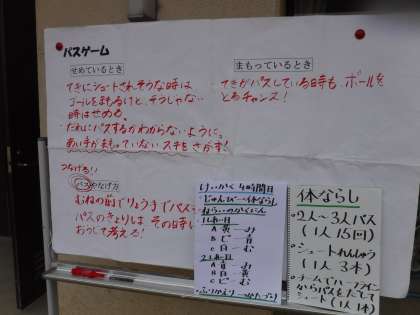 パスゲーム
せめているとき
てきにシュートされそうな時は
ゴールをまもるけど、そうじゃない
時はせめる。
だれにパスするかわからないように。
あい手がまもっていないスキをさがす!
つなげる!!
パスのなげ方
むねの前でりょう手でパス
パスのきょりは その日手に
おうじて考える!
まもっているとき
てきがパスしている時も、ボールを
とるチャンス!
けいかく 4時間目
・じゅんび→体ならし
・ねらいのかくにん
・1しあい目
A 黄ーみ
B ピー青
C 白ーむ
・2しあい目
A 青ーみ
B 白ー黄
C ピーむ
・ふりかえり→かたづけ
体ならし
・2人〜3人パス
(1人15回)
・シュートれんしゅう
(1人3本)
・チームでハーフライン
シュート(1人1本)